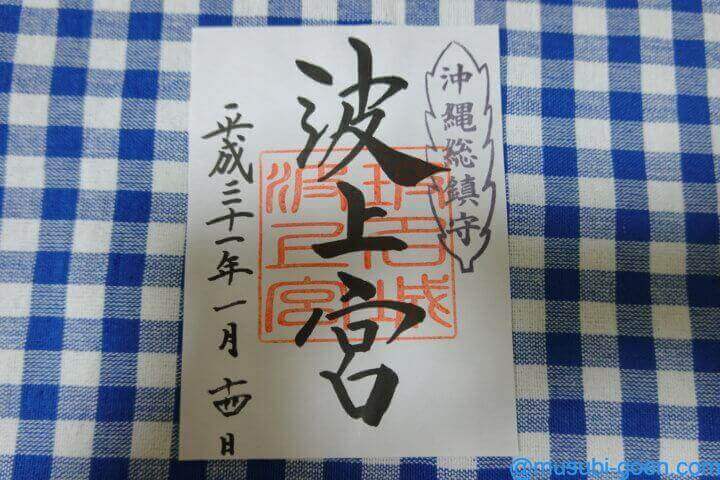 沖縄総鎮守
波上宮
波上宮
平成三十一年一月十四日
@musubi-goen.com